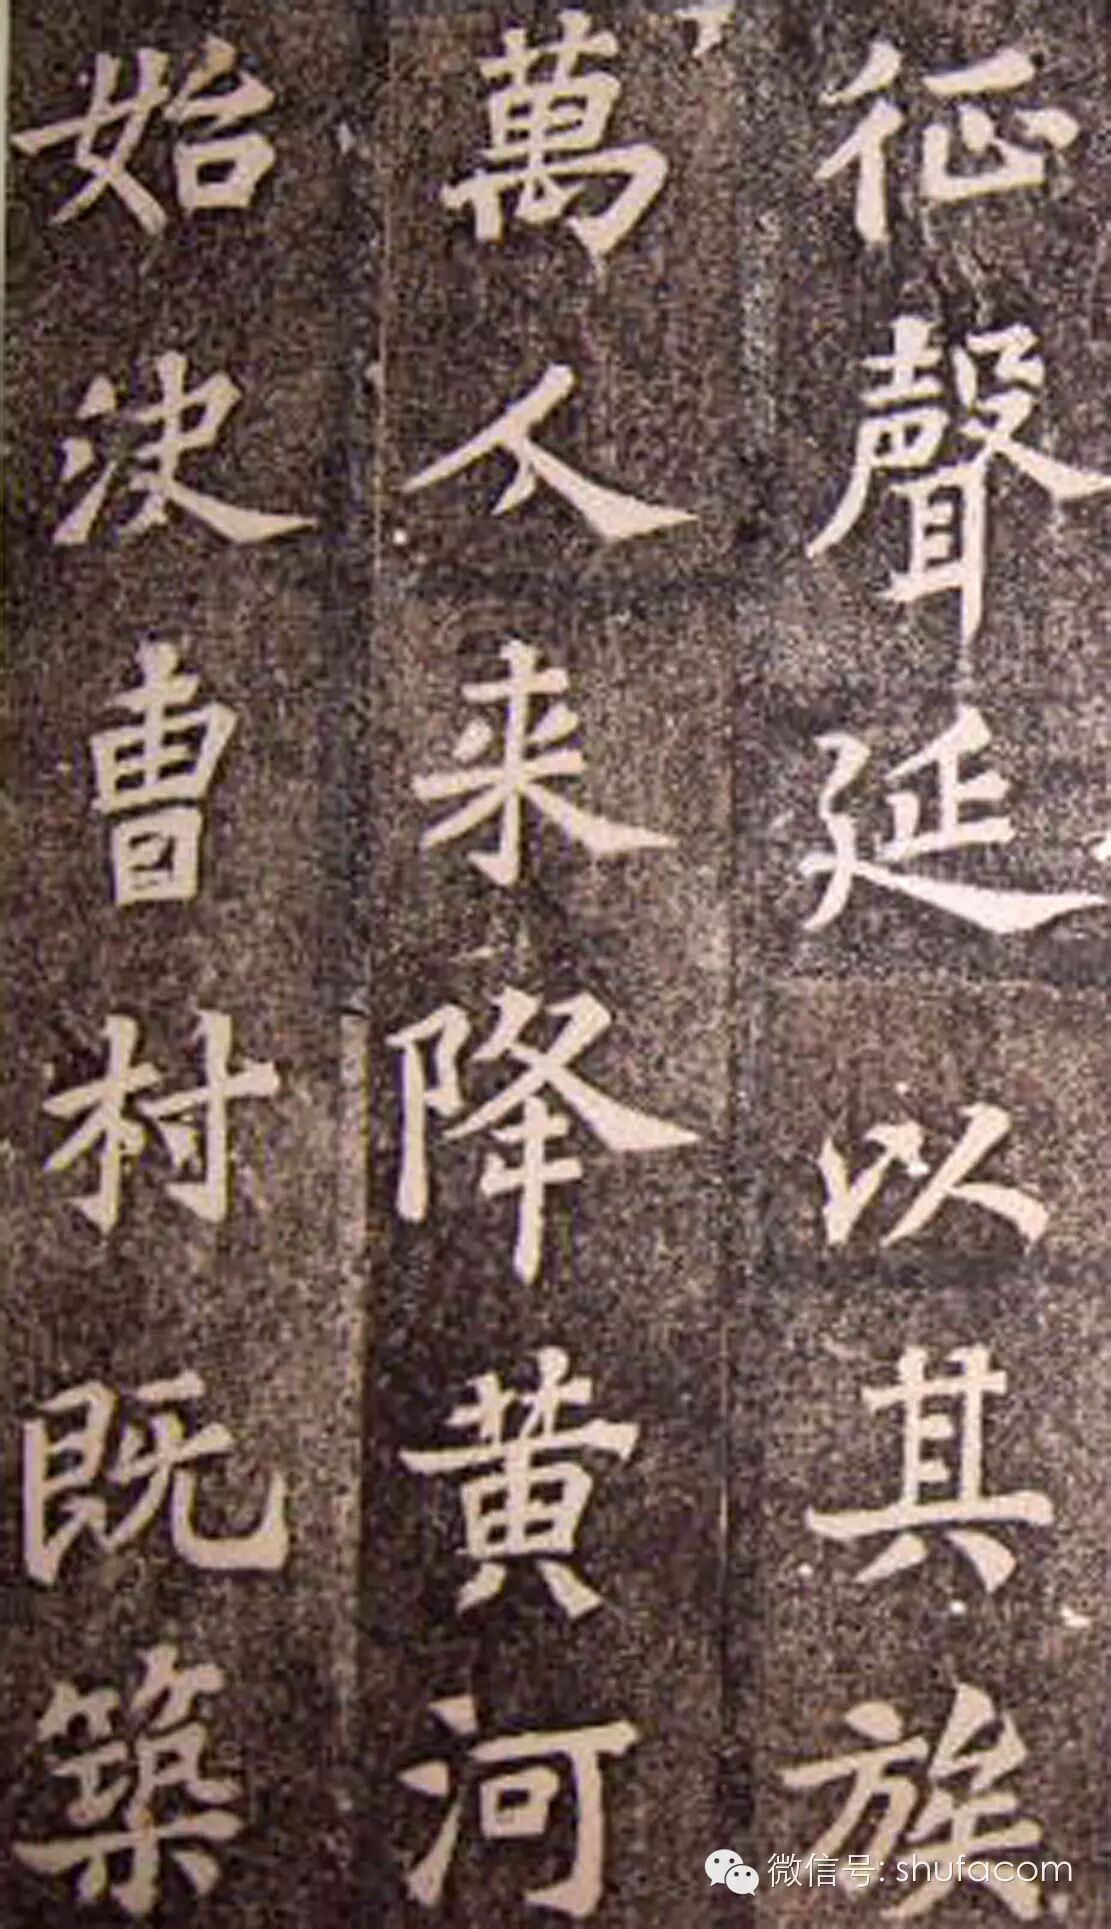 征聲延以其族
萬人来降黄河
始決曹村既築
微信号: shufacom